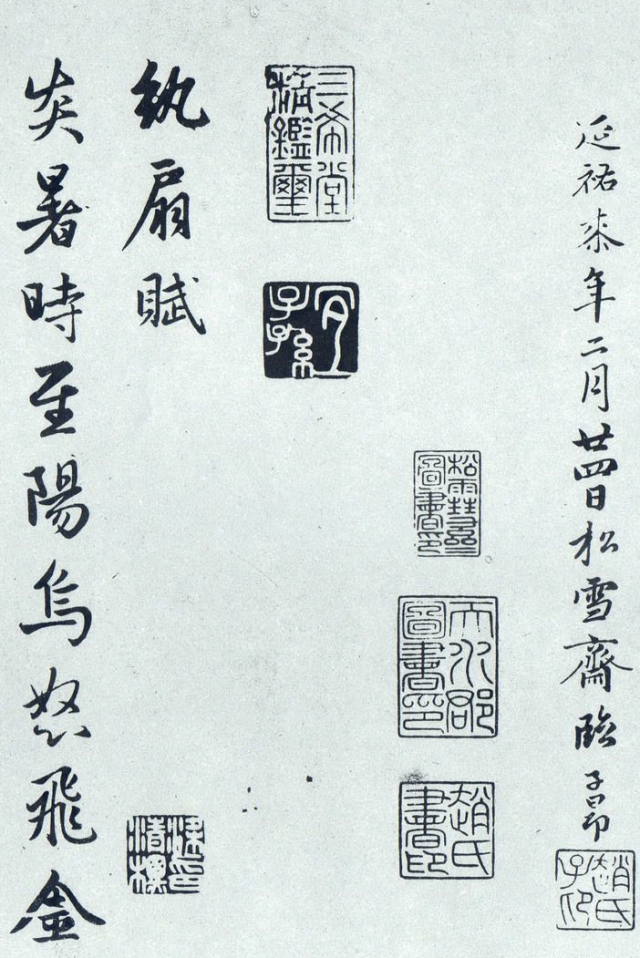 延祐柒年二月廿四日松雪齋臨子昂
趙氏子昂
松雪齋圖書印
天水郡圖書印
趙氏書印
三希堂精鑑璽
宜子孫
紈扇賦
梁印清標
炎暑時至陽烏怒飛金